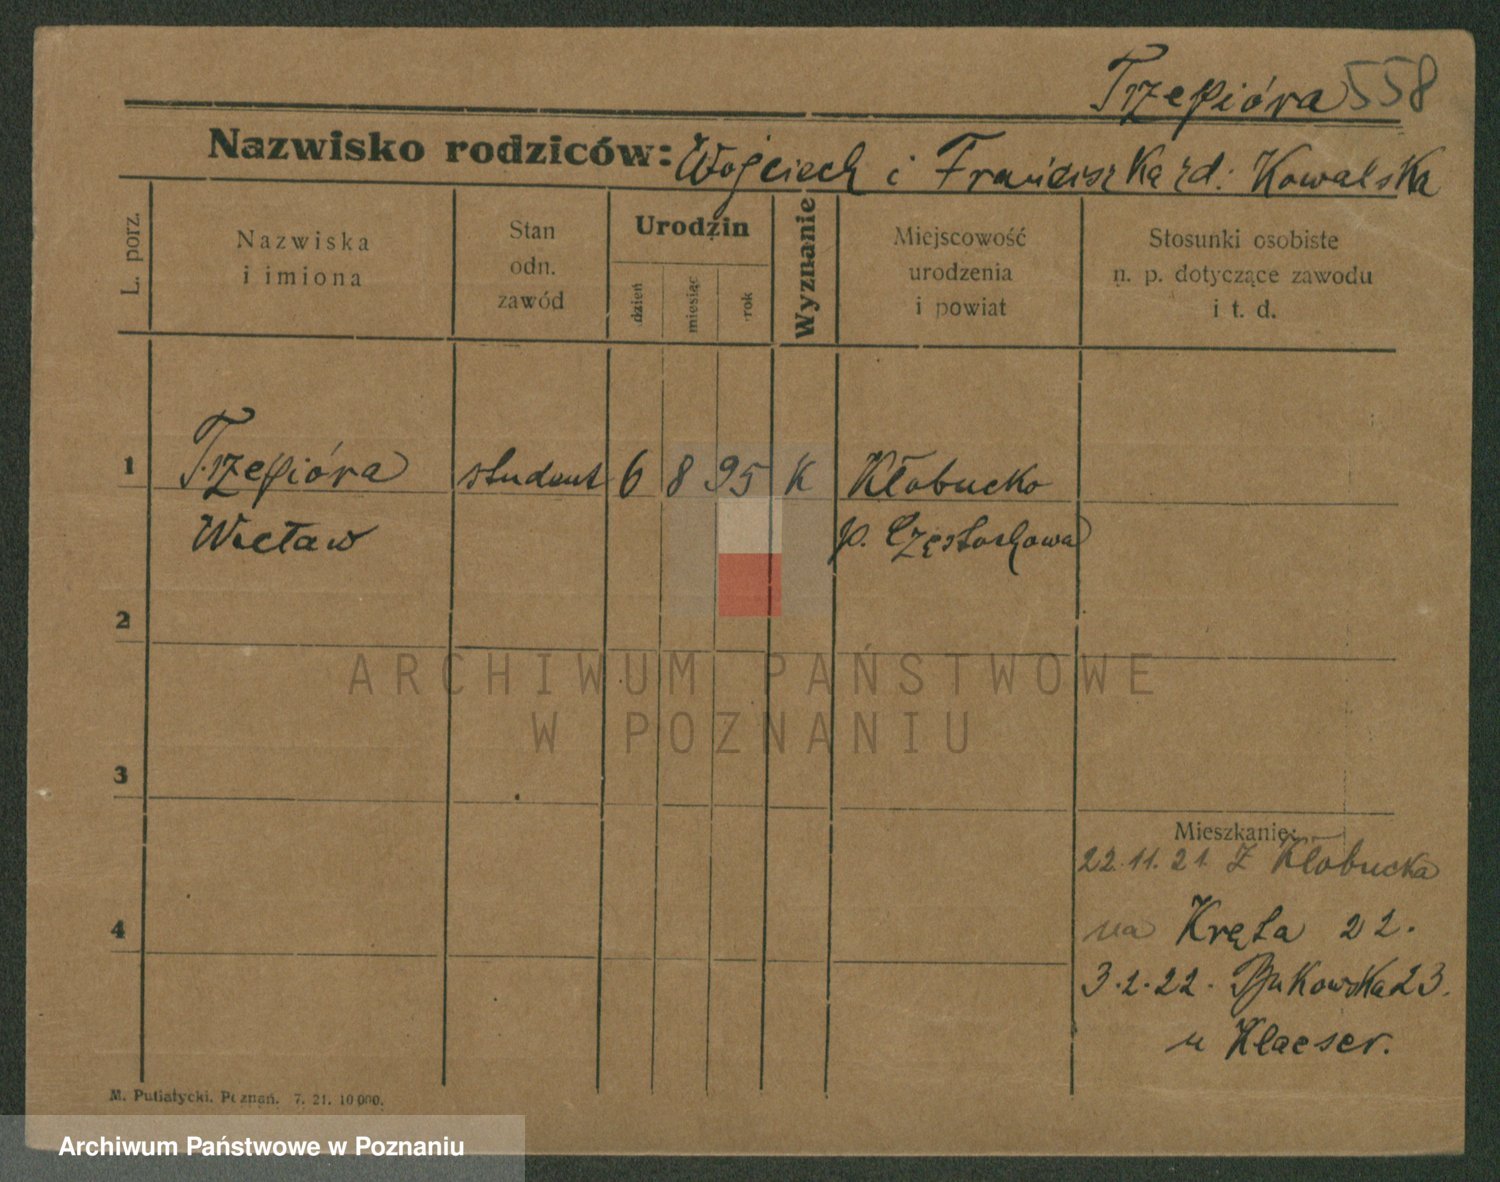 Trzepióra 558
Nazwisko rodziców: Wojciech i Franciszka rd. Kowalska
L. porz.
Nazwiska
i imiona
Stan
odn.
zawód
Urodzin
dzień
miesiąc
rok
Wyznanie
Miejscowość
urodzenia
i powiat
Stosunki osobiste
n. p. dotyczące zawodu
i t. d.
1 Trzepióra student 6 8 95 K Kłobucko
Wacław p. Częstochowa
2
ARCHIWUM PAŃSTWOWE
W POZNANIU
3
Mieszkanie:
22.11.21. Z Kłobucka
4 na Kręta 22.
3.2.22. Bukowska 23.
u Klaeser.
M. Putiatycki. Poznań. 7. 21. 10 000.
Archiwum Państwowe w Poznaniu